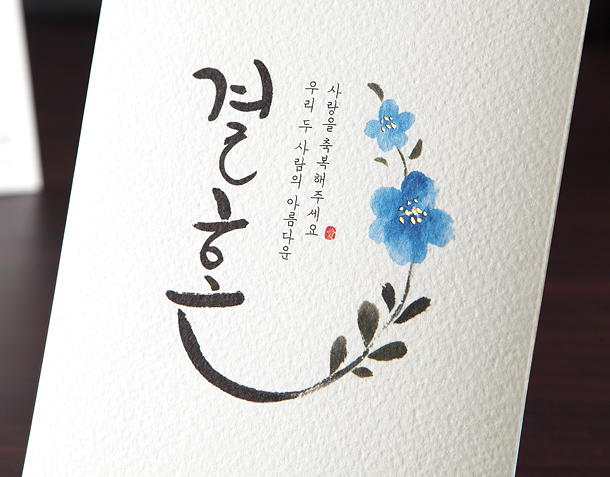 결혼
우리 두 사람의 아름다운
사랑을 축복해주세요